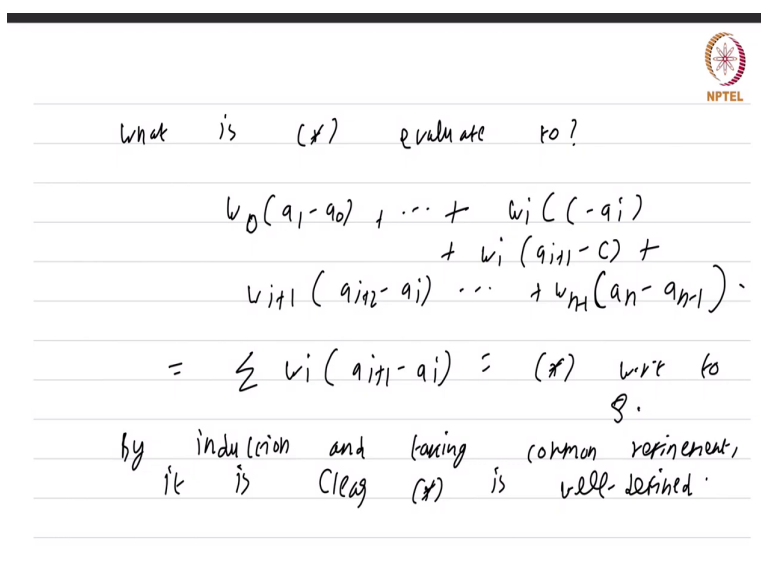 NPTEL
What is (*) evaluate to?
w₀(a₁-a₀) + ... + wi(c-ai)
+ wi(ai+1-c) +
wi+1(ai+2-ai) ... + wn-1(an-an-1).
= Σ wi(ai+1-ai) = (*) w.r.t to
S.
By induction and taking common refinement,
it is clear (*) is well-defined.